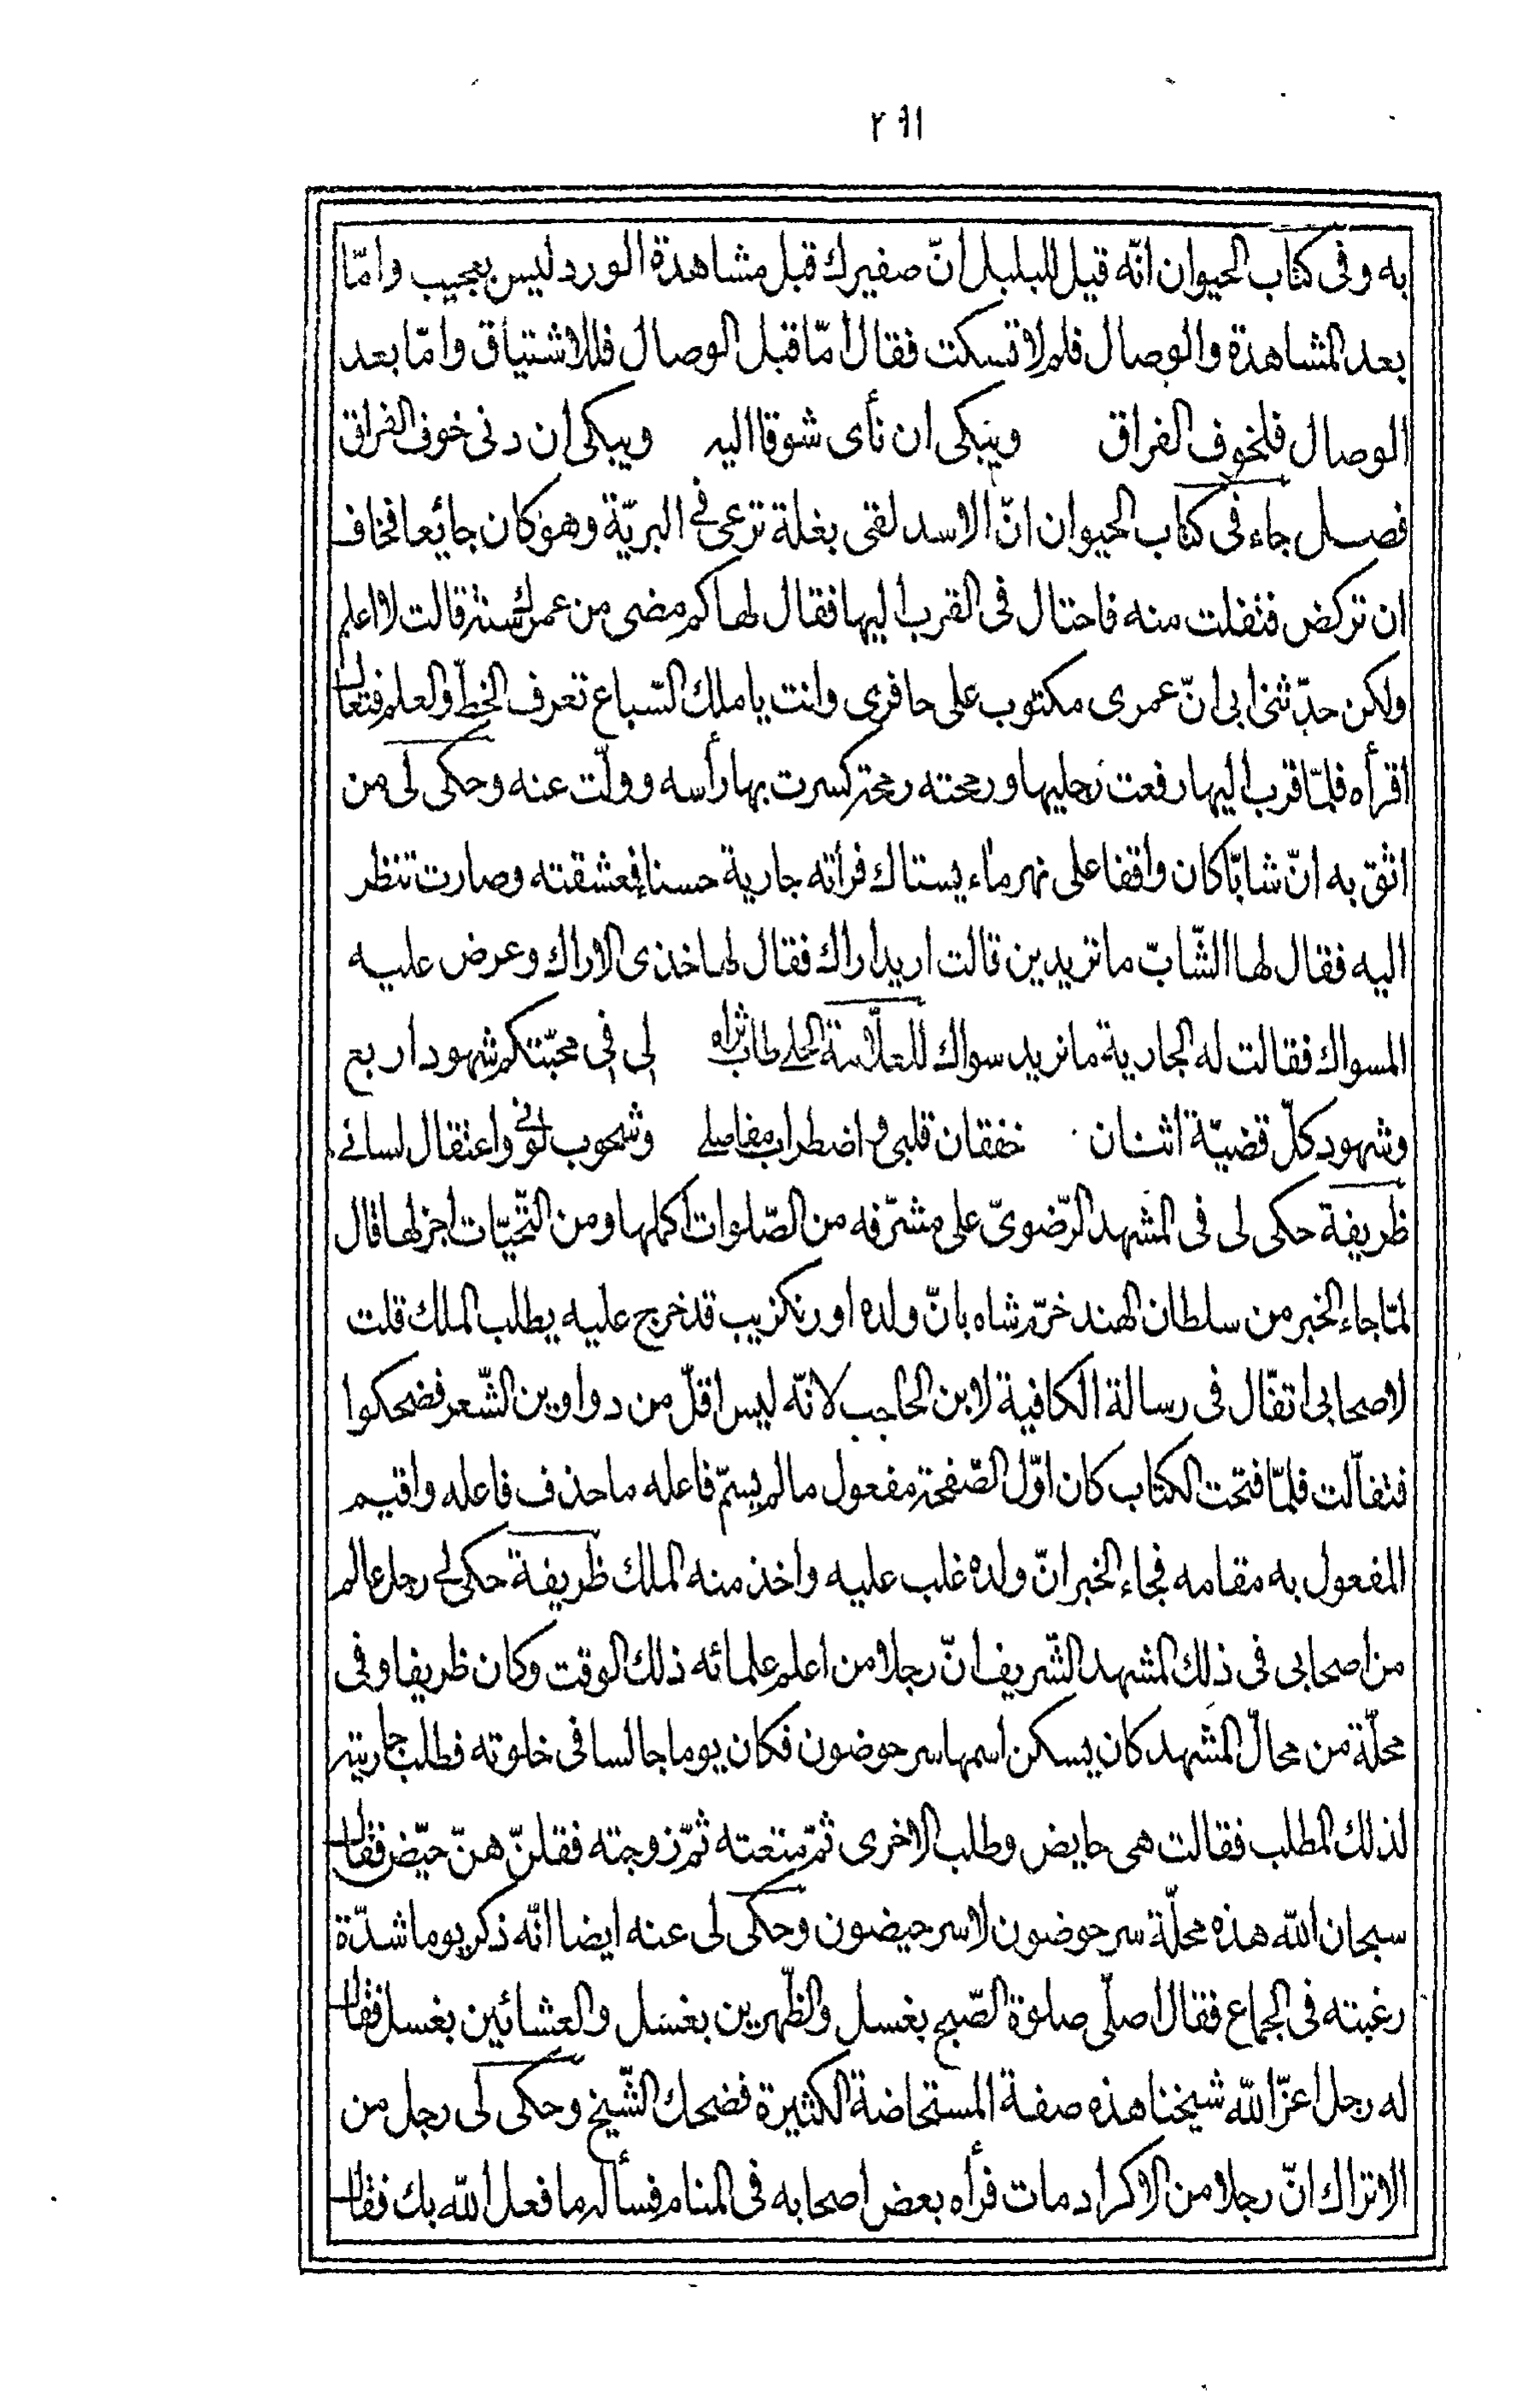 ٢٩١
به وفى كتاب الحيوان انّه قيل للبلبل انّ صفيرك قبل مشاهدة الورد ليس بعجيب وامّا
بعد المشاهدة والوصال فلم لا تسكت فقال امّا قبل الوصال فللاشتياق وامّا بعد
الوصال فلخوف الفراق ويبكى ان نأى شوقا اليه ويبكى ان دنى خوف الفراق
فصل جاء فى كتاب الحيوان انّ الاسد لقى بغلة ترعى فى البريّة وهو كان جائعا فخاف
ان تركض فتفلت منه فاحتال فى القرب اليها فقال لها كم مضى من عمرك سنة قالت لا اعلم
ولكن حدّثنى ابى انّ عمرى مكتوب على حافرى وانت يا ملك السّباع تعرف الخطّ والعلم فتعال
اقرأه فلمّا قرب اليها رفعت رجليها ورمحته رمحة كسرت بها رأسه وولّت عنه وحكى لى من
اثق به انّ شابّا كان واقفا على نهر ماء يستاك فرأته جارية حسناء فعشقته وصارت تنظر
اليه فقال لها الشّابّ ما تريدين قالت اريد اراك فقال لها خذى الاراك وعرض عليه
المسواك فقالت له الجارية ما نريد سواك للعلّامة الحلى طاب ثراه لى فى محبّتكم شهود اربع
وشهود كلّ قضيّة اثنان خفقان قلبى واضطراب مفاصلى وشحوب لونى واعتقال لسانى
ظريفة حكى لى فى المشهد الرّضوىّ على مشرّفه من الصّلوات اكملها ومن التّحيّات اجزلها قال
لمّا جاء الخبر من سلطان الهند خرّم شاه بانّ ولده اورنكزيب قد خرج عليه يطلب الملك قلت
لاصحابى اتفّال فى رسالة الكافية لابن الحاجب لانّه ليس اقلّ من دواوين الشّعر فضحكوا
فتفألت فلمّا فتحت الكتاب كان اوّل الصّفحة مفعول ما لم يسمّ فاعله ما حذف فاعله واقيم
المفعول به مقامه فجاء الخبر انّ ولده غلب عليه واخذ منه الملك ظريفة حكى لى رجل عالم
من اصحابى فى ذلك المشهد الشّريف انّ رجلا من اعلم علمائه ذلك الوقت وكان ظريفا وفى
محلّة من محالّ المشهد كان يسكن اسمها سر حوضون فكان يوما جالسا فى خلوته فطلب جاريته
لذلك المطلب فقالت هى حايض وطلب الاخرى ثمّ متعته ثمّ زوجته فقلنّ هنّ حيّض فقال
سبحان الله هذه محلّة سر حوضون لا سر حيضون وحكى لى عنه ايضا انّه ذكر يوما شدّة
رغبته فى الجماع فقال اصلّى صلوة الصّبح بغسل والظّهرين بغسل والعشائين بغسل فقال
له رجل اعزّ الله شيخنا هذه صفة المستحاضة الكثيرة فضحك الشّيخ وحكى لى رجل من
الاتراك انّ رجلا من الاكراد مات فرأه بعض اصحابه فى المنام فسأله ما فعل الله بك فقال